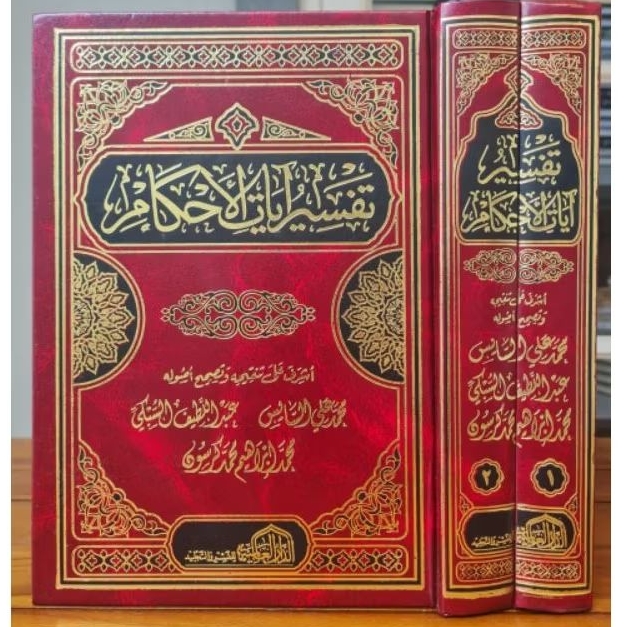 تفسير آيات الأحكام
أشرف على تنقيحه وتصحيح أصوله
محمد علي السايس عبد اللطيف السبكي
محمد إبراهيم محمد كرسون
الدار العالمية للنشر والتجليد
تفسير
آيات الأحكام
أشرف على تنقيحه
وتصحيح أصوله
محمد علي السايس
عبد اللطيف السبكي
محمد إبراهيم محمد كرسون
٢ ١
الدار العالمية للنشر والتجليد